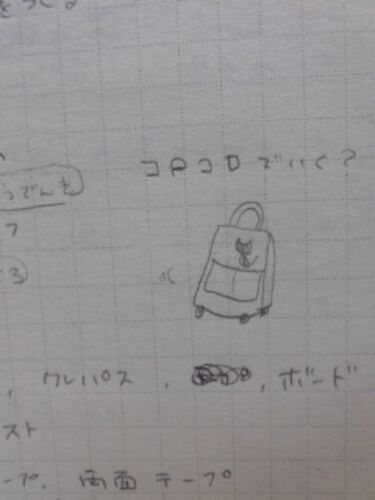 コロコロでいく?
うでんを
7
3
, クレパス, , ボード
スト
ープ, 両面テープ